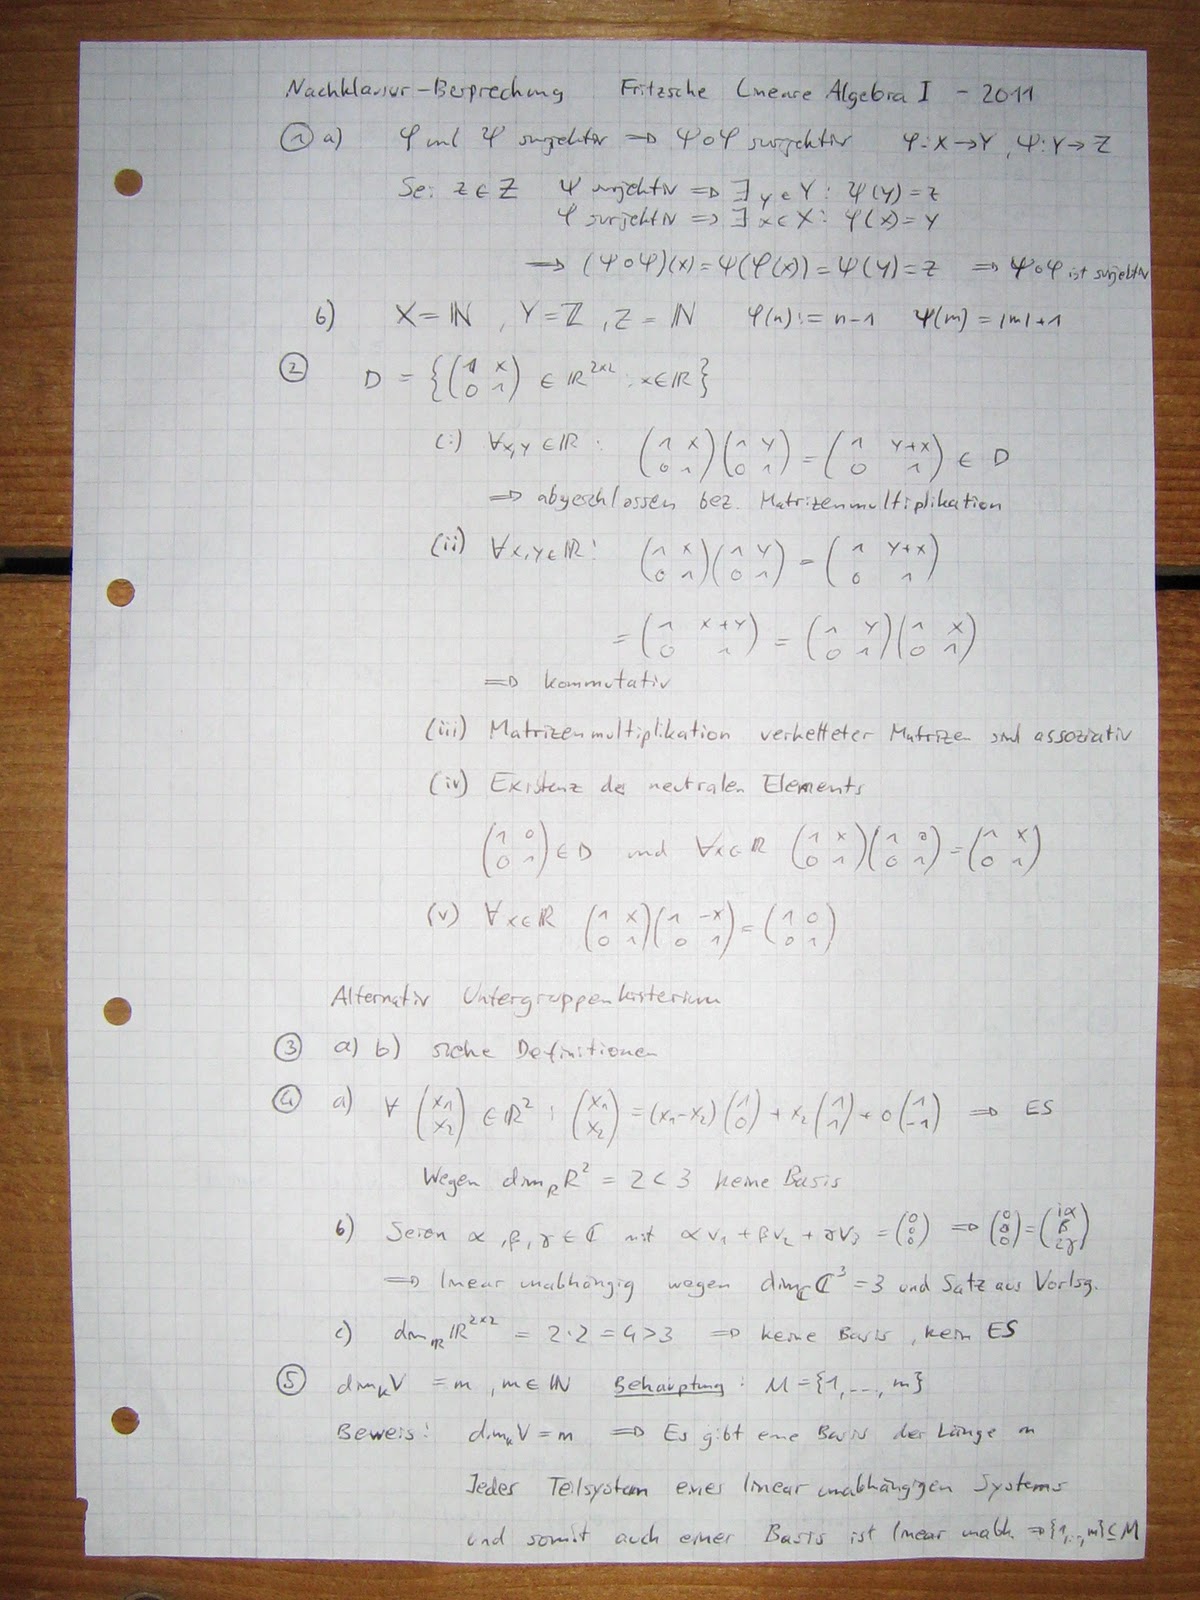 Nachklausur-Besprechung Fritzsche Lineare Algebra I - 2011
① a) φ und ψ surjektiv ⟹ ψ∘φ surjektiv φ: X→Y, ψ: Y→Z
Sei z∈Z ψ surjektiv ⟹ ∃ y∈Y: ψ(y)=z
φ surjektiv ⟹ ∃ x∈X: φ(x)=y
⟹ (ψ∘φ)(x)=ψ(φ(x))=ψ(y)=z ⟹ ψ∘φ ist surjektiv
b) X=ℕ, Y=ℤ, Z=ℕ φ(n):=n-1 ψ(m)=|m|+1
② D = {(1 x; 0 1) ∈ ℝ^{2×2} : x∈ℝ}
(i) ∀x,y∈ℝ: (1 x; 0 1)(1 y; 0 1) = (1 y+x; 0 1) ∈ D
⟹ abgeschlossen bez. Matrizenmultiplikation
(ii) ∀x,y∈ℝ: (1 x; 0 1)(1 y; 0 1) = (1 y+x; 0 1)
= (1 x+y; 0 1) = (1 y; 0 1)(1 x; 0 1)
⟹ kommutativ
(iii) Matrizenmultiplikation verketteter Matrizen sind assoziativ
(iv) Existenz des neutralen Elements
(1 0; 0 1)∈D und ∀x∈ℝ (1 x; 0 1)(1 0; 0 1)=(1 x; 0 1)
(v) ∀x∈ℝ (1 x; 0 1)(1 -x; 0 1)=(1 0; 0 1)
Alternativ Untergruppenkriterium
③ a) b) siehe Definitionen
④ a) ∀ (x₁; x₂) ∈ℝ² : (x₁; x₂) = (x₁-x₂)(1; 0) + x₂(1; 1) + 0(1; -1) ⟹ ES
Wegen dim_ℝ ℝ² = 2 < 3 keine Basis
b) Seien α, β, γ ∈ ℂ mit αv₁ + βv₂ + γv₃ = (0; 0; 0) ⟹ (0; 0; 0)=(iα; β; iγ)
⟹ linear unabhängig wegen dim_ℂ ℂ³ = 3 und Satz aus Vorlsg.
c) dim_ℝ ℝ^{2×2} = 2·2 = 4 > 3 ⟹ keine Basis, kein ES
⑤ dim_K V = m, m∈ℕ Behauptung: M={1,...,m}
Beweis: dim_K V = m ⟹ Es gibt eine Basis der Länge m
Jedes Teilsystem eines linear unabhängigen Systems
und somit auch einer Basis ist linear unabh. ⟹{1,..,m}⊆M